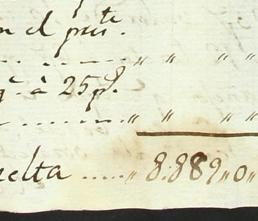 n el pres.te
.......... " " " "
q.e à 25 p.s
.......... " " " "
uelta ..... " 8.889 " 0 "